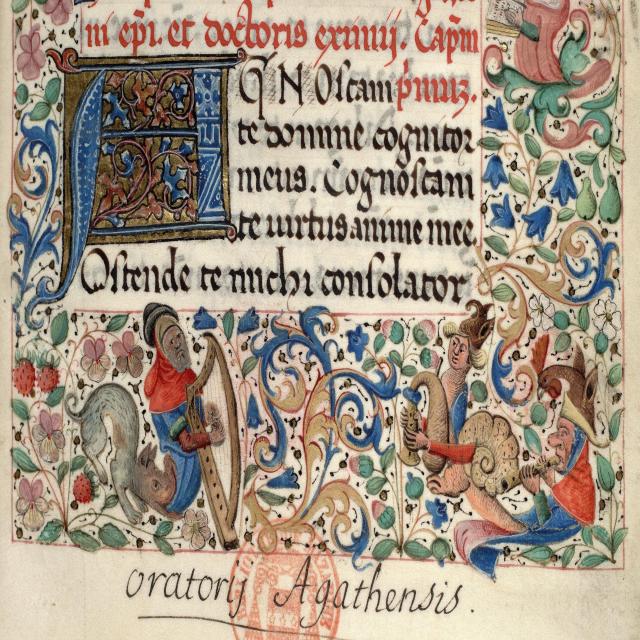 ni ep̄i. et doctoris eximij. Cap̄m
AGNOscam p̄muz.
te domine cognitor
meus. Cognoscam
te virtus anime mee.
Ostende te michi consolator
oratorij Agathensis.